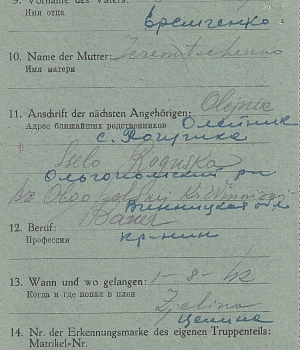 9. Vorname des Vaters:
Имя отца
Еремченко
10. Name der Mutter: Jeremtschenko
Имя матери
11. Anschrift der nächsten Angehörigen: Olejnik
Адрес ближайших родственников Олейник
с.
Selo Roguska
Ольгопольский
Винницкая обл
12. Beruf: Bauer
Профессия
кр-нин
13. Wann und wo gefangen: 1-8-42
Когда и где попал в плен
Zelina
Целина
14. Nr. der Erkennungsmarke des eigenen Truppenteils:
Matrikel-Nr.